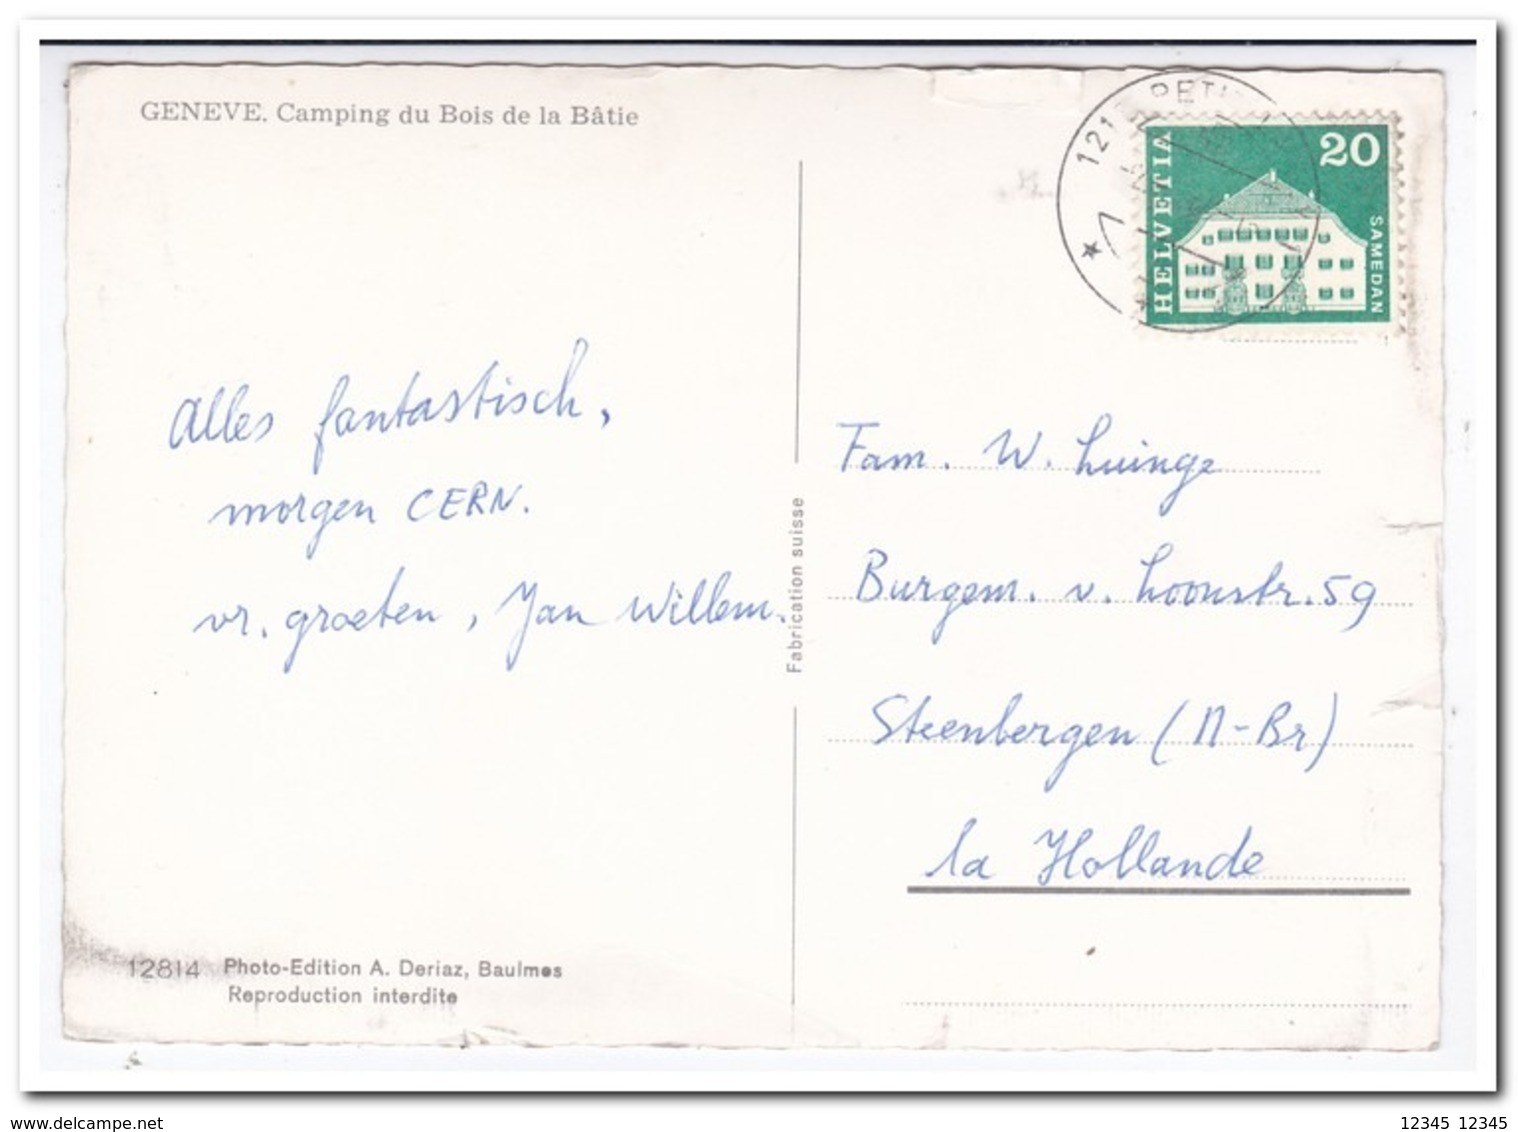 GENEVE. Camping du Bois de la Bâtie
HELVETIA
20
SAMEDAN
Alles fantastisch,
morgen CERN.
vr. groeten, Jan Willem.
Fabrication suisse
Fam. W. Luinge
Burgem. v. Loonstr. 59
Steenbergen (N-Br)
la Hollande
12814 Photo-Edition A. Deriaz, Baulmes
Reproduction interdite
www.delcampe.net
12345 12345